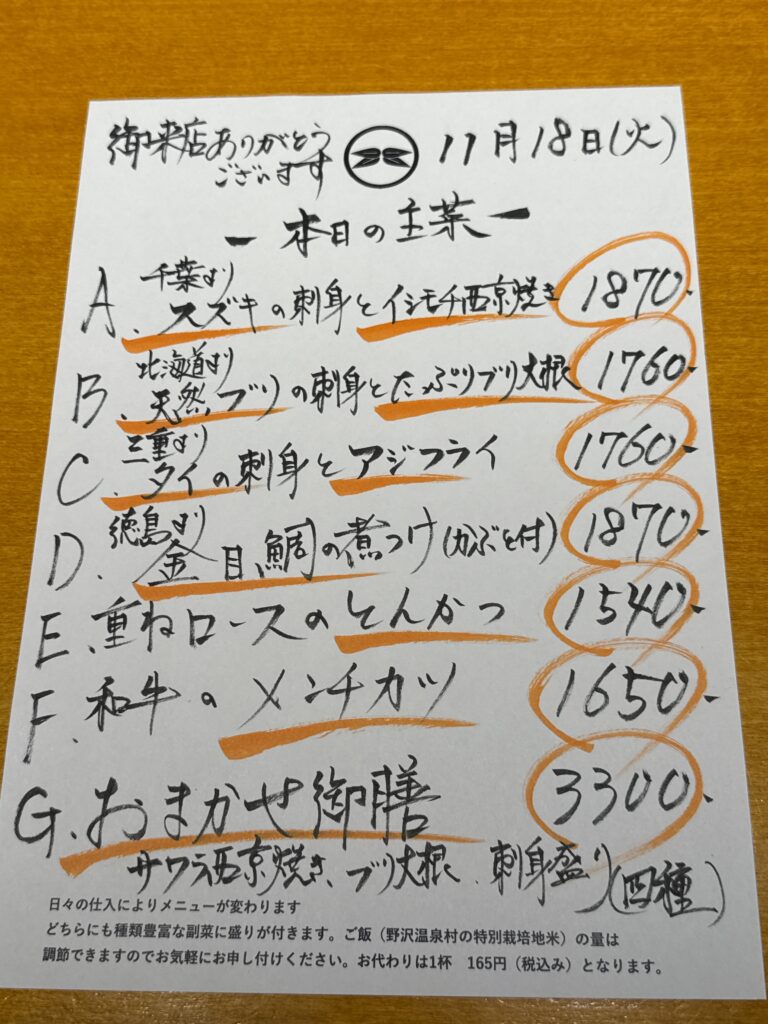 御来店ありがとう
ございます
11月18日(火)
ー本日の主菜ー
千葉より
A、スズキの刺身とイシモチ西京焼き 1870-
北海道より
B、天然ブリの刺身とたっぷりブリ大根 1760-
三重より
C、タイの刺身とアジフライ 1760-
徳島より
D、金目鯛の煮つけ(かぶと付) 1870-
E、重ねロースのとんかつ 1540-
F、和牛のメンチカツ 1650-
G、おまかせ御膳 3300-
サワラ西京焼き、ブリ大根、刺身盛り(四種)
日々の仕入によりメニューが変わります
どちらにも種類豊富な副菜に盛りが付きます。ご飯（野沢温泉村の特別栽培地米）の量は
調節できますのでお気軽にお申し付けください。お代わりは1杯　165円（税込み）となります。